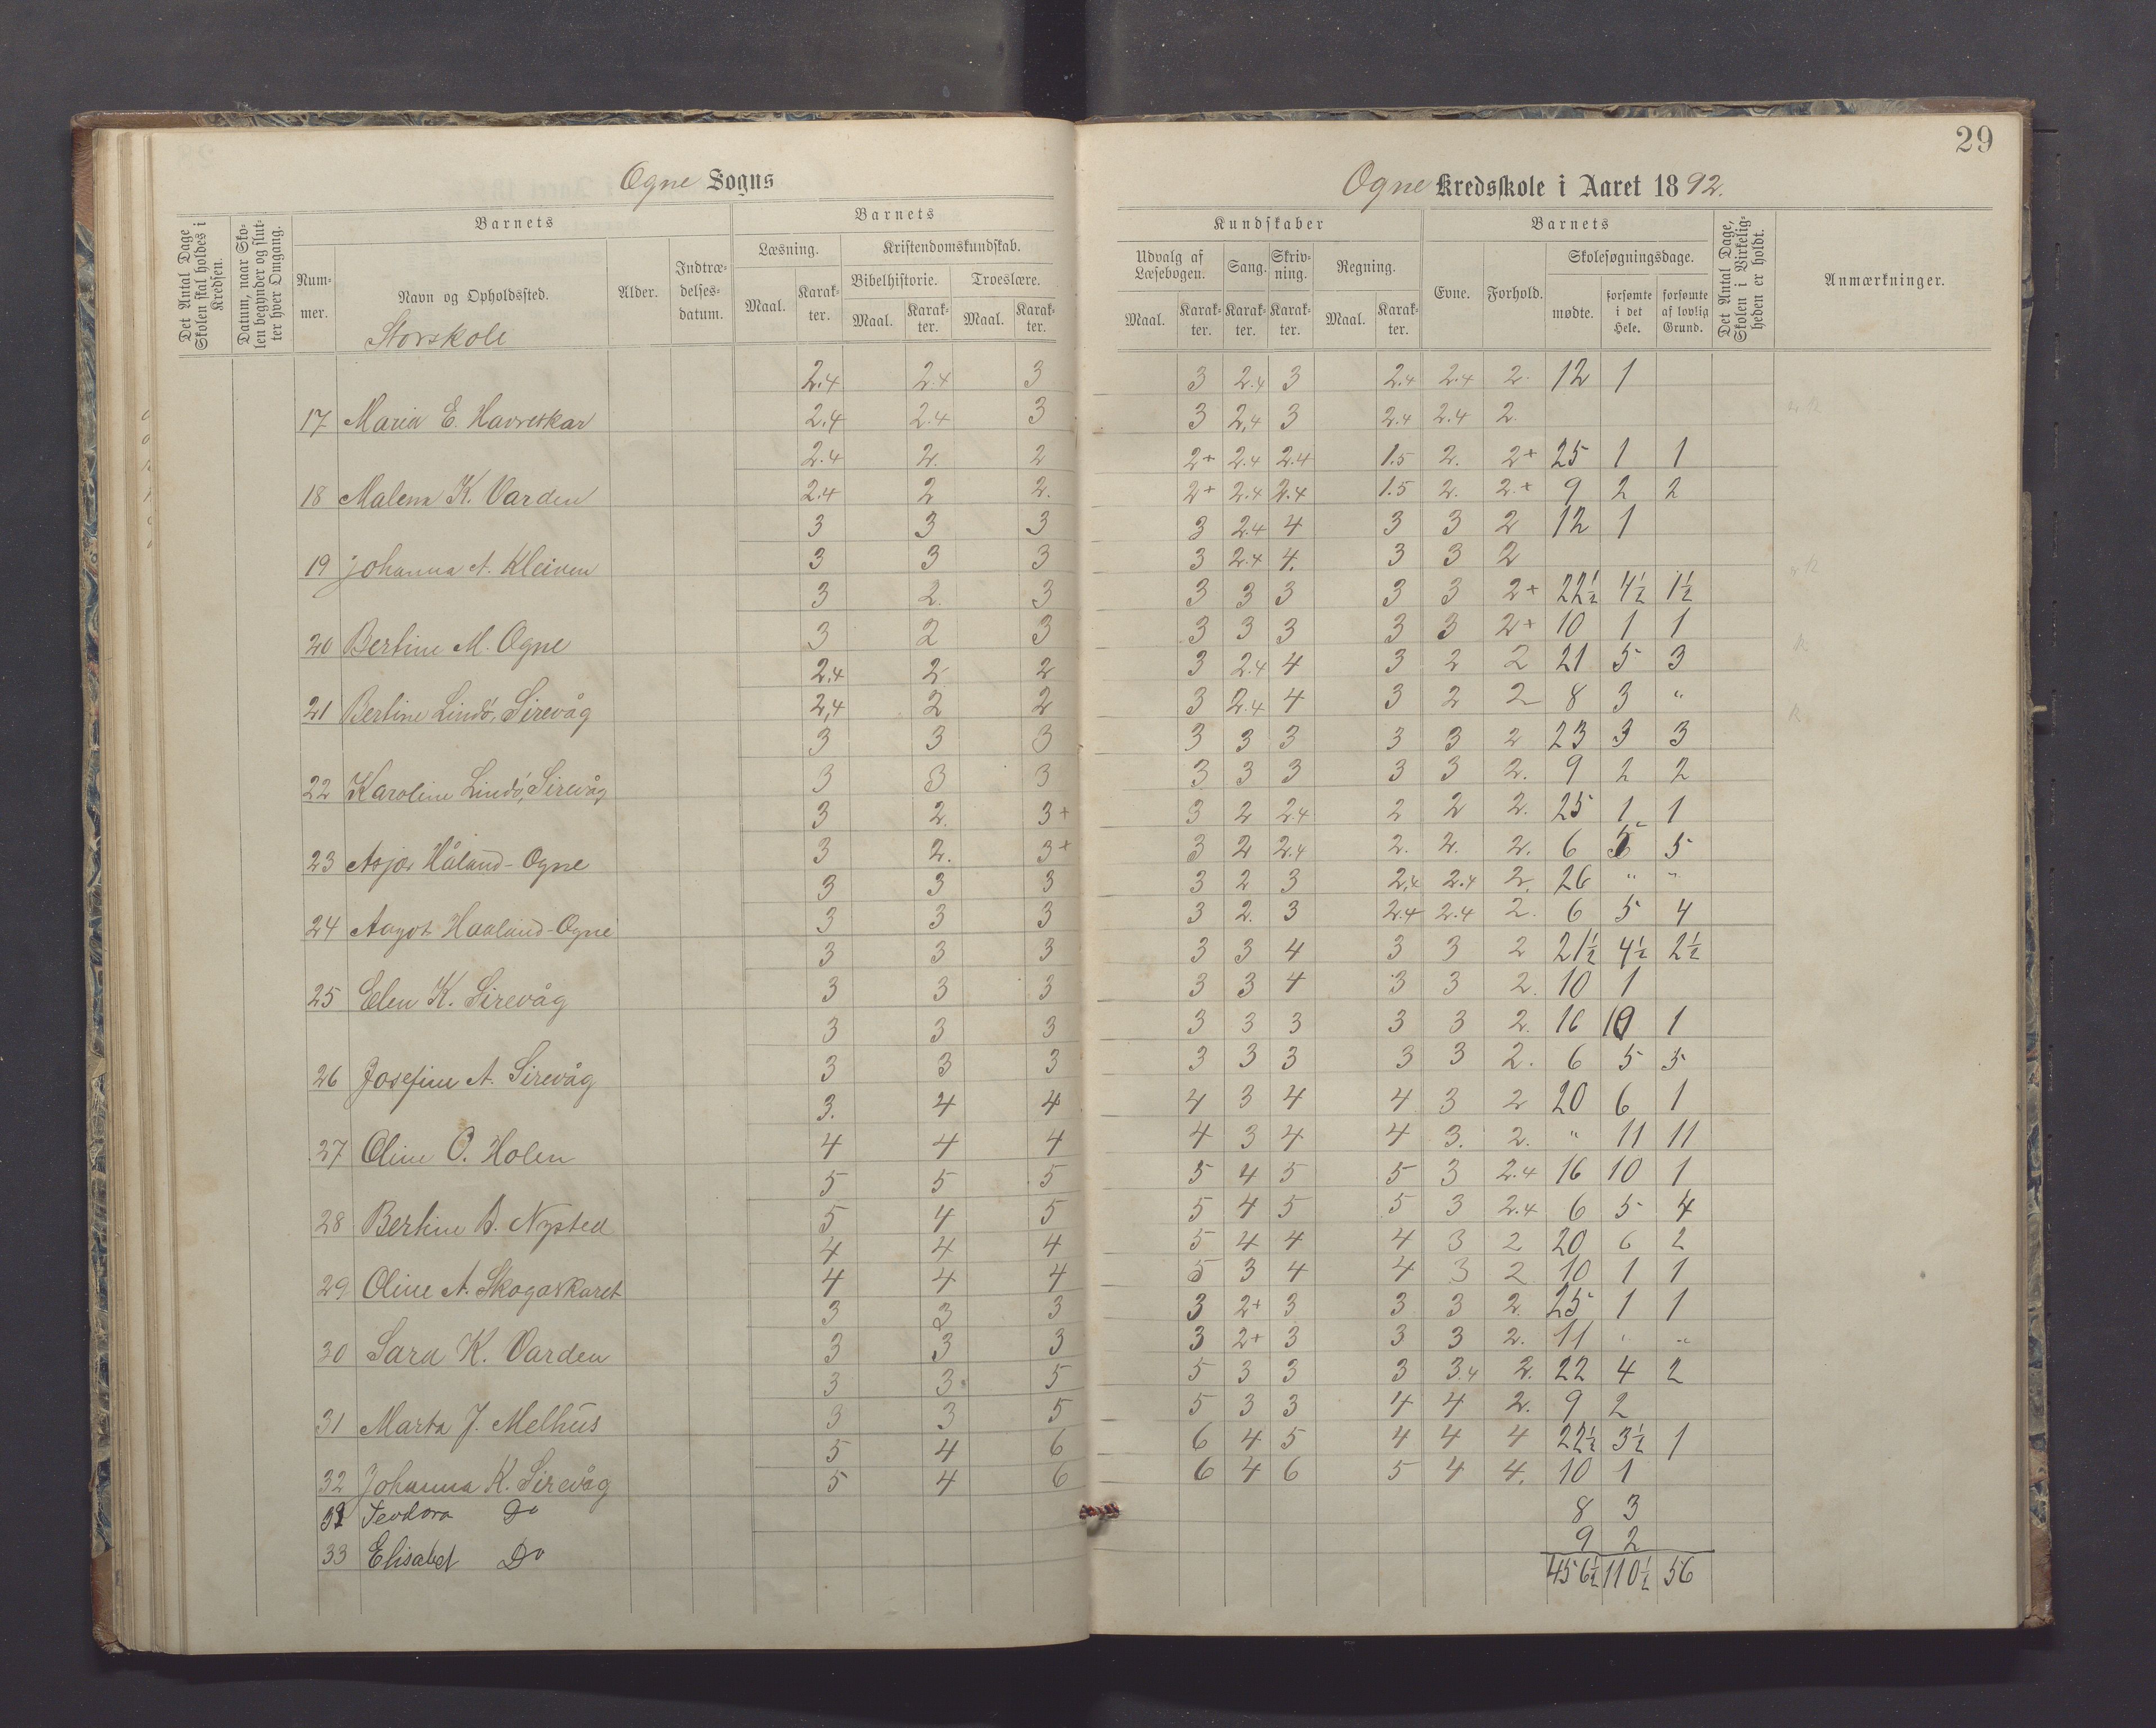 29
Ogne Sogns
Ogne Kredsskole i Aaret 1892.
Det Antal Dage Skolen skal holdes i Kredsen.
Datum, naar Skolen begynder og slutter hver Omgang.
Barnets
Nummer.
Navn og Opholdssted.
Storskole
Alder.
Indtrædelsesdatum.
Barnets
Læsning.
Maal.
Karakter.
Kristendomskundskab.
Bibelhistorie.
Maal.
Karakter.
Troeslære.
Maal.
Karakter.
Kundskaber
Udvalg af Læsebogen.
Maal.
Karakter.
Sang.
Karakter.
Skrivning.
Karakter.
Regning.
Maal.
Karakter.
Barnets
Evne.
Forhold.
Skolesøgningsdage.
mødte.
forsømte i det Hele.
forsømte af lovlig Grund.
Det Antal Dage, Skolen i Virkeligheden er holdt.
Anmærkninger.
2.4 2.4 3 3 2.4 3 2.4 2.4 2. 12 1
17 Maria E. Havreskar 2.4 2.4 3 3 2,4 3 2.4 2.4 2.
2.4 2. 2 2+ 2.4 2.4 1.5 2. 2+ 25 1 1
18 Malena K. Varden 2.4 2 2. 2+ 2.4 2.4 1.5 2. 2.+ 9 2 2
3 3 3 3 2.4 4 3 3 2 12 1
19 Johanna A. Kleiven 3 3 3 3 2.4 4. 3 3 2
3 2. 3 3 3 3 3 3 2+ 22½ 4½ 1½
20 Bertine M. Ogne 3 2 3 3 3 3 3 3 2+ 10 1 1
2,4 2 2 3 2.4 4 3 2 2 21 5 3
21 Bertine Lindö, Sirevåg 2,4 2 2 3 2.4 4 3 2 2 8 3 "
3 3 3 3 3 3 3 3 2 23 3 3
22 Karoline Lindö, Sirevåg 3 3 3 3 3 3 3 3 2. 9 2 2
3 2. 3+ 3 2 2.4 2 2 2. 25 1 1
23 Asjør Håland-Ogne 3 2. 3+ 3 2 2.4 2. 2. 2. 6 5 5
3 3 3 3 2 3 2,4 2.4 2. 26 " "
24 Aagot Haaland-Ogne 3 3 3 3 2. 3 2.4 2.4 2. 6 5 4
3 3 3 3 3 4 3 3 2 21½ 4½ 2½
25 Elen K. Sirevåg 3 3 3 3 3 4 3 3 2. 10 1
3 3 3 3 3 3 3 3 2. 16 10 1
26 Josefine A. Sirevåg 3 3 3 3 3 3 3 3 2. 6 5 5
3. 4 4 4 3 4 4 3 2 20 6 1
27 Oline O. Holen 4 4 4 4 3 4 4 3. 2. " 11 11
5 5 5 5 4 5 5 3 2.4 16 10 1
28 Bertine B. Nysted 5 4 5 5 4 5 5 3 2.4 6 5 4
4 4 4 5 4 4 4 3 2 20 6 2
29 Oline A. Skogaskaret 4 4 4 5 3 4 4 3 2 10 1 1
3 3 3 3 2+ 3 3 3 2 25 1 1
30 Sara K. Varden 3 3 3 3 2+ 3 3 3 2. 11 " "
3 3 5 5 3 3 3 3.4 2. 22 4 2
31 Marta J. Melhus 3 3 5 5 3 3 4 4 2. 9 2
5 4 6 6 4 5 4 4 4 22½ 3½ 1
32 Johanna K. Sirevåg 5 4 6 6 4 6 5 4 4. 10 1
32 Teodora Do 8 3
33 Elisabet Do 9 2
456½ 110½ 56